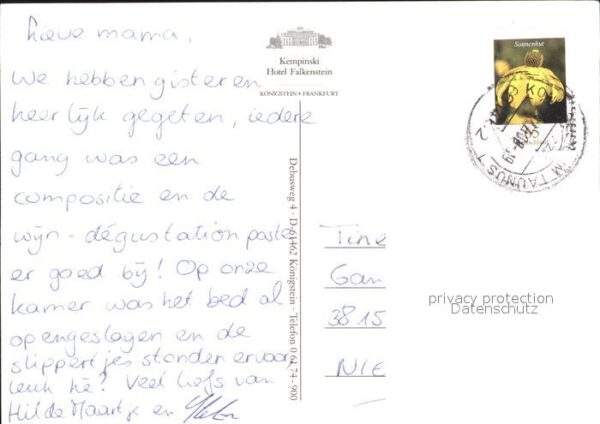 Lieve mama,
We hebben gisteren
heerlijk gegeten, iedere
gang was een
compositie en de
wijn-dégustation paste
er goed bij! Op onze
kamer was het bed al
opengeslagen en de
slippertjes stonden ervoor,
leuk hè? Veel liefs van
Hilde Maartje en
Kempinski
Hotel Falkenstein
KÖNIGSTEIN • FRANKFURT
Debusweg 4 - D-61462 Königstein - Telefon 0 61 74 - 900
Sonnenhut
TAUNUS 1
2
Tine
Gan
3815
NIE
privacy protection
Datenschutz